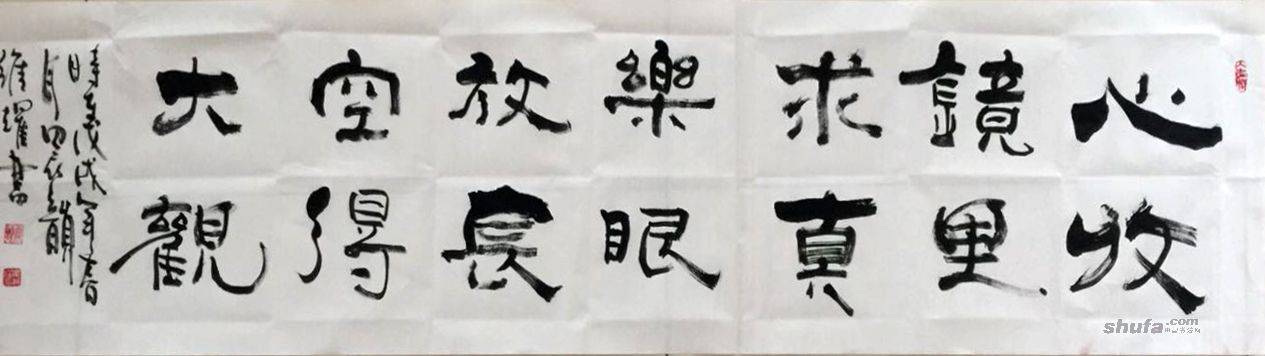 心收
鏡里
求真
樂眼
放長
空得
大觀
時在戊戌年春
月
維耀書
shufa.com